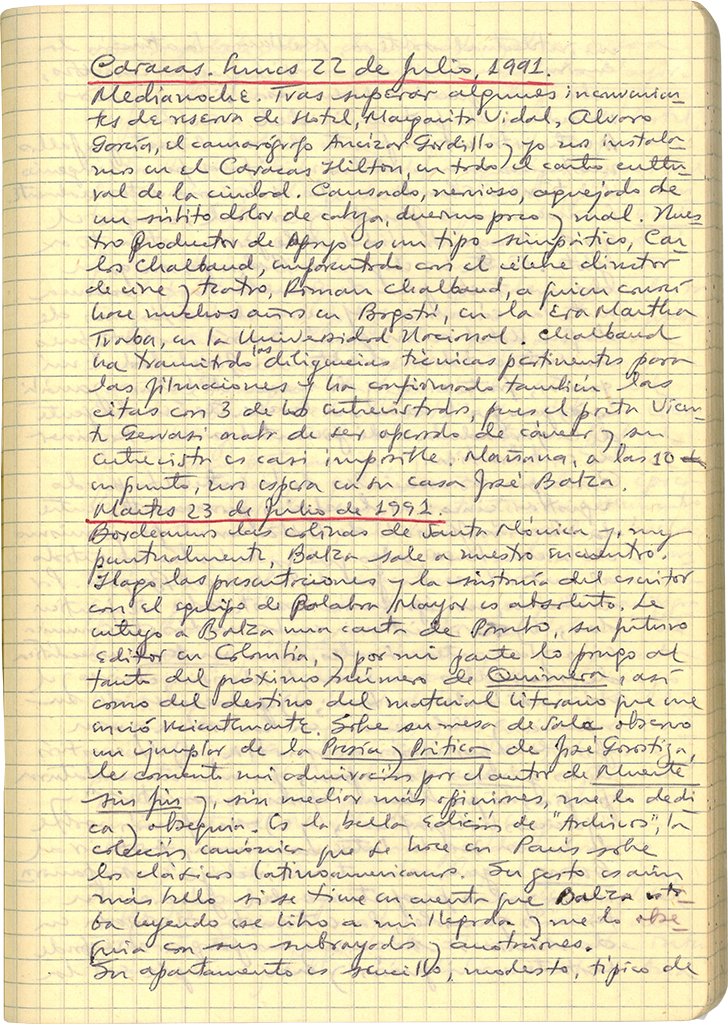 Caracas. Lunes 22 de Julio, 1991.
Medianoche. Tras superar algunos inconvenien-
tes de reserva de Hotel, Margarita Vidal, Alvaro
García, el camarógrafo Ancízar Gordillo y yo nos instala-
mos en el Caracas Hilton, en todo el centro cultu-
ral de la ciudad. Cansado, nervioso, aquejado de
un súbito dolor de cabeza, duermo poco y mal. Nues-
tro Productor de Apoyo es un tipo simpático, Car-
los Chalbaud, emparentado con el célebre director
de cine y teatro, Román Chalbaud, a quien conocí
hace muchos años en Bogotá, en la Era Martha
Traba, en la Universidad Nacional. Chalbaud
ha tramitado las diligencias técnicas pertinentes para
las filmaciones y ha confirmado también las
citas con 3 de los entrevistados, pues el poeta Vicen-
te Gerbasi acaba de ser operado de cáncer y su
entrevista es casi imposible. Mañana, a las 10
en punto, nos espera en su casa José Balza.
Martes 23 de Julio de 1991.
Bordeamos las colinas de Santa Mónica y, muy
puntualmente, Balza sale a nuestro encuentro.
Hago las presentaciones y la sintonía del escritor
con el equipo de Palabra Mayor es absoluta. Le
entrego a Balza una carta de Pombo, su futuro
Editor en Colombia, y por mi parte lo pongo al
tanto del próximo número de Quimera, así
como del destino del material literario que me
envió recientemente. Sobre su mesa de sala observo
un ejemplar de la Poesía y Poética de José Gorostiza,
le comento mi admiración por el autor de Muerte
sin fin y, sin mediar más opiniones, me lo dedi
ca y obsequia. Es la bella Edición de "Archivos", la
colección canónica que se hace en París sobre
los clásicos latinoamericanos. Su gesto es aún
más bello si se tiene en cuenta que Balza esta-
ba leyendo ese libro a mi llegada y me lo obse-
quia con sus subrayados y anotaciones.
Su apartamento es sencillo, modesto, típico de